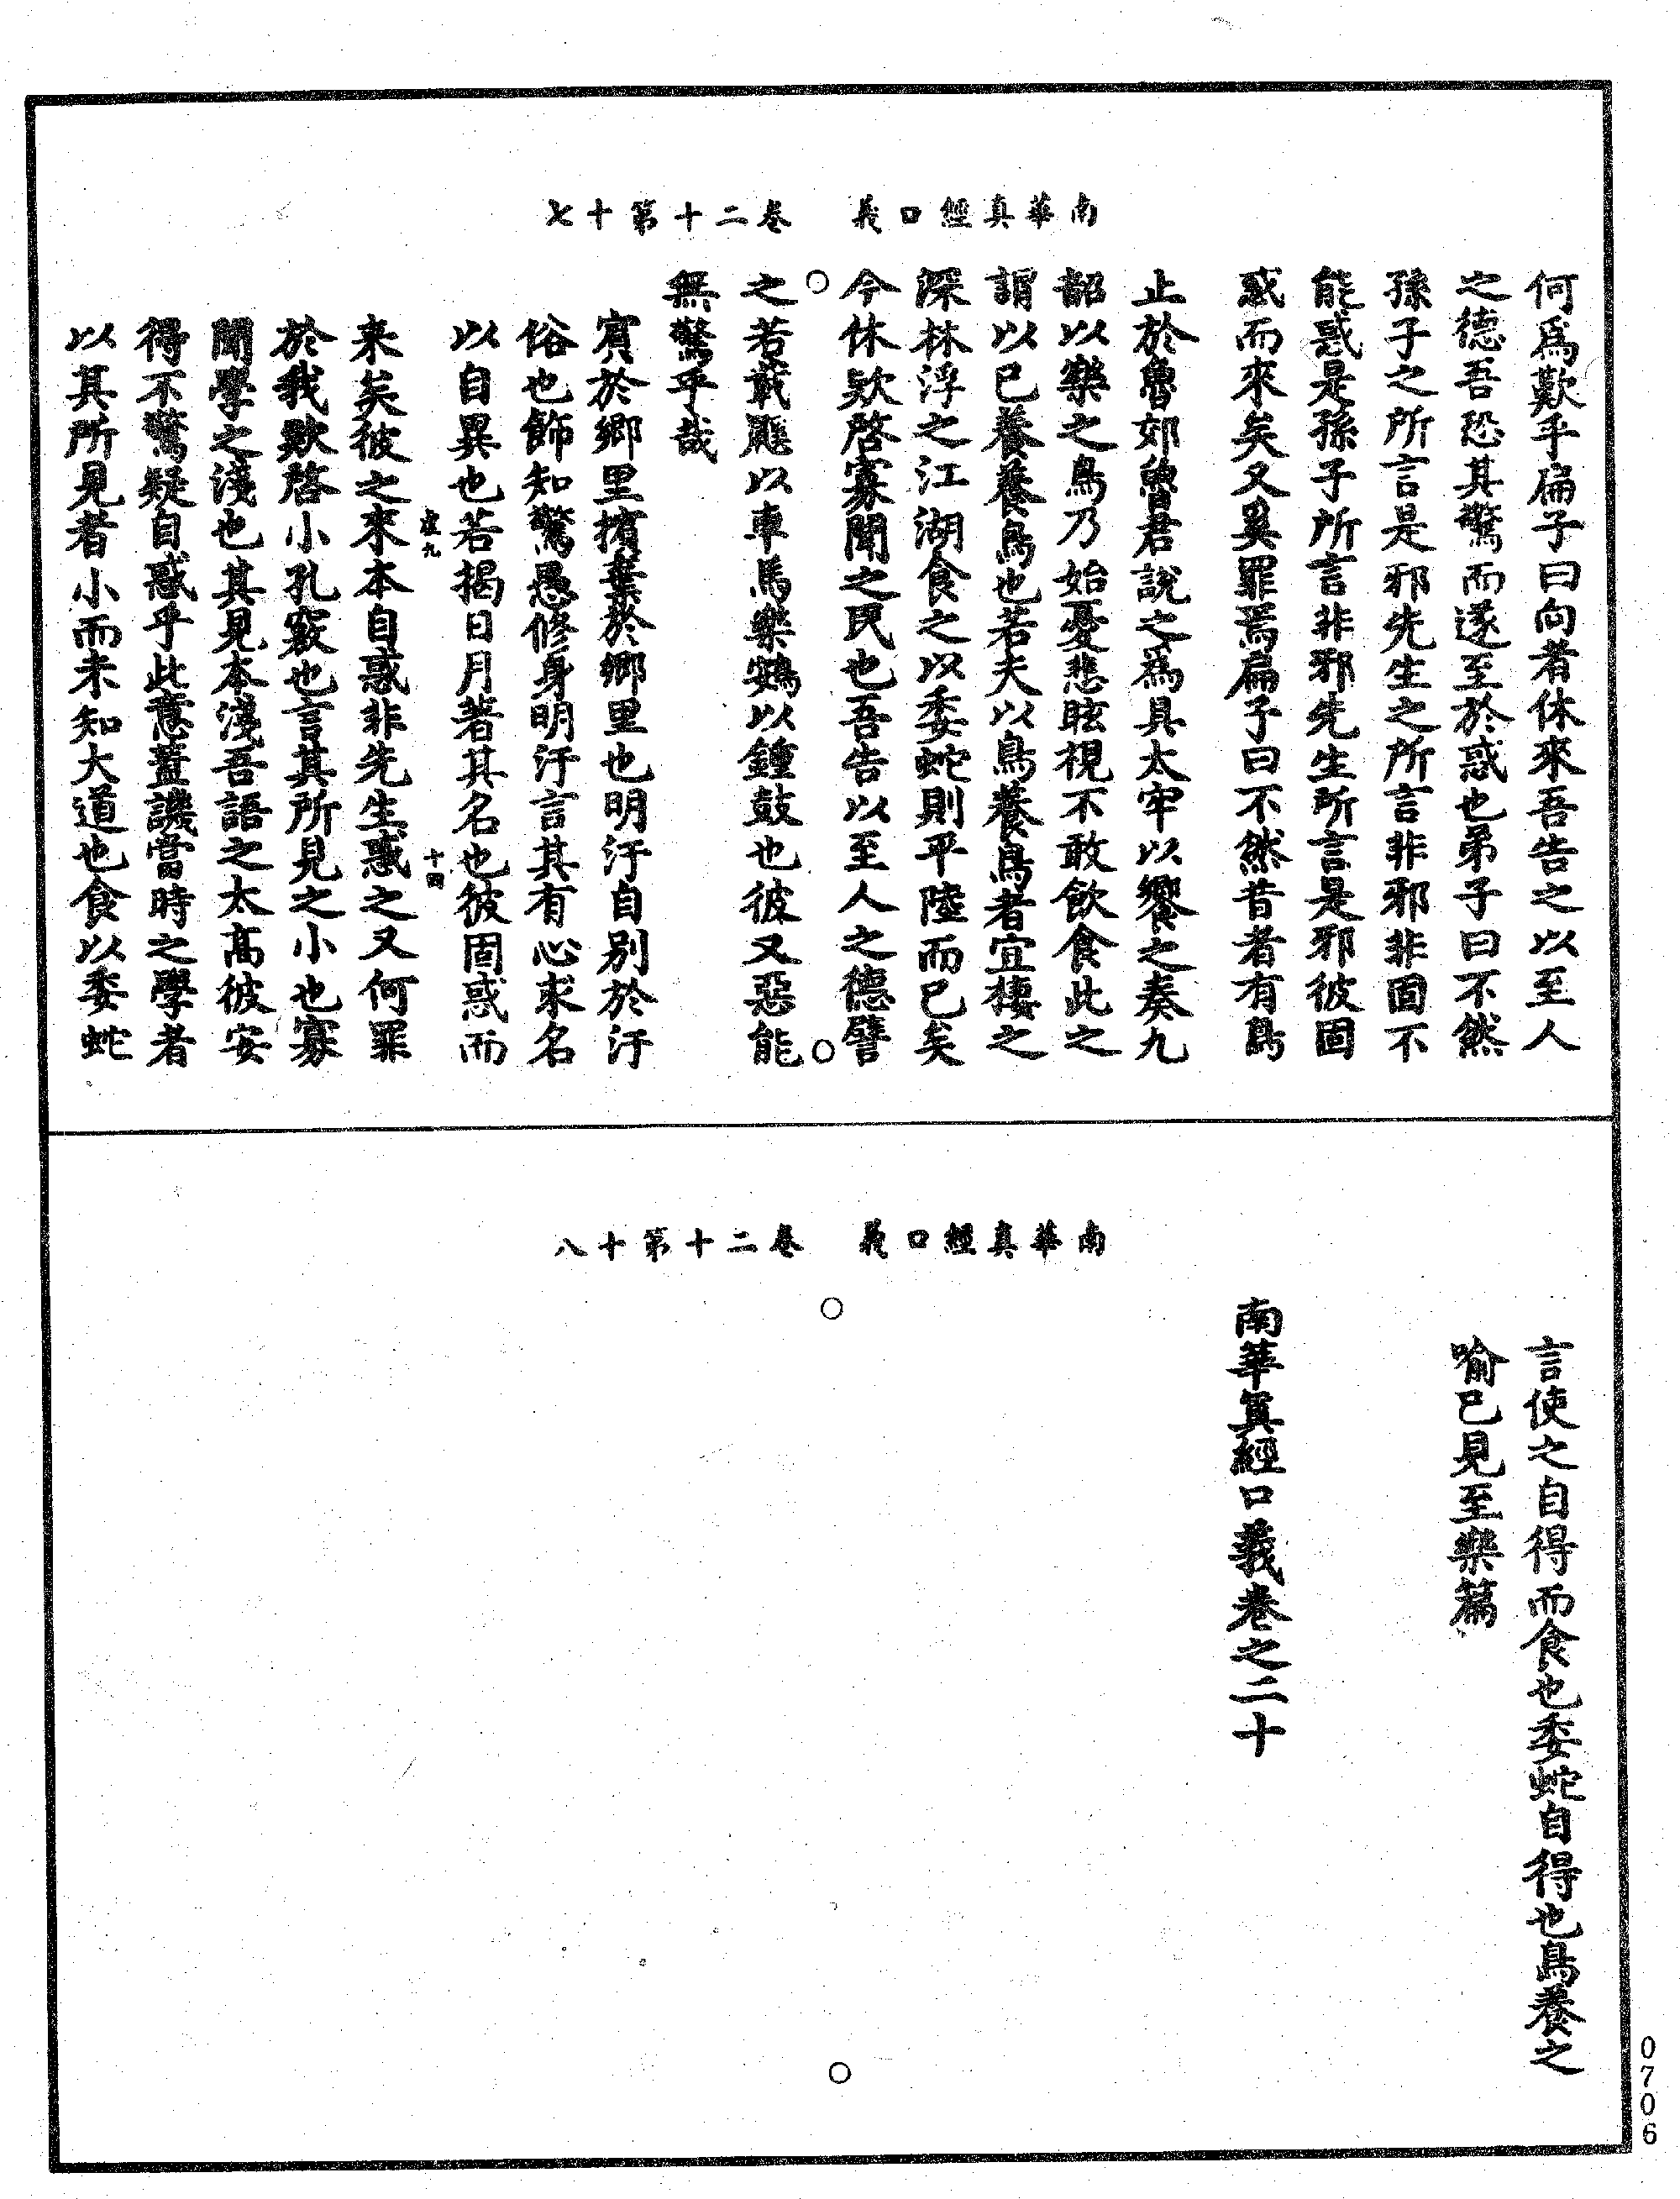 南華真經口義　卷二十第十七
何爲歎乎扁子曰向者休來吾告之以至人
之德吾恐其驚而遂至於惑也弟子曰不然
孫子之所言是邪先生之所言非邪非固不
能惑是孫子所言非邪先生所言是邪彼固
惑而來矣又奚罪焉扁子曰不然昔者有鳥
止於魯郊魯君說之爲具太牢以饗之奏九
韶以樂之鳥乃始憂悲眩視不敢飲食此之
謂以已養養鳥也若夫以鳥養養鳥者宜棲之
深林浮之江湖食之以委蛇則平陸而已矣
今休款啓寡聞之民也吾告以至人之德譬
之若載鼷以車馬樂鴳以鐘鼓也彼又惡能
無驚乎哉
賓於鄉里擯棄於鄉里也明汙自別於汙
俗也飾知驚愚修身明汙言其有心求名
以自異也若揭日月著其名也彼固惑而
虛九　十四
來矣彼之來本自惑非先生惑之又何罪
於我款啓小孔竅也言其所見之小也寡
聞學之淺也其見本淺吾語之太高彼安
得不驚疑自惑乎此意蓋譏當時之學者
以其所見者小而未知大道也食以委蛇
南華真經口義　卷二十第十八
言使之自得而食也委蛇自得也鳥養之
喻已見至樂篇
南華真經口義卷之二十
0706